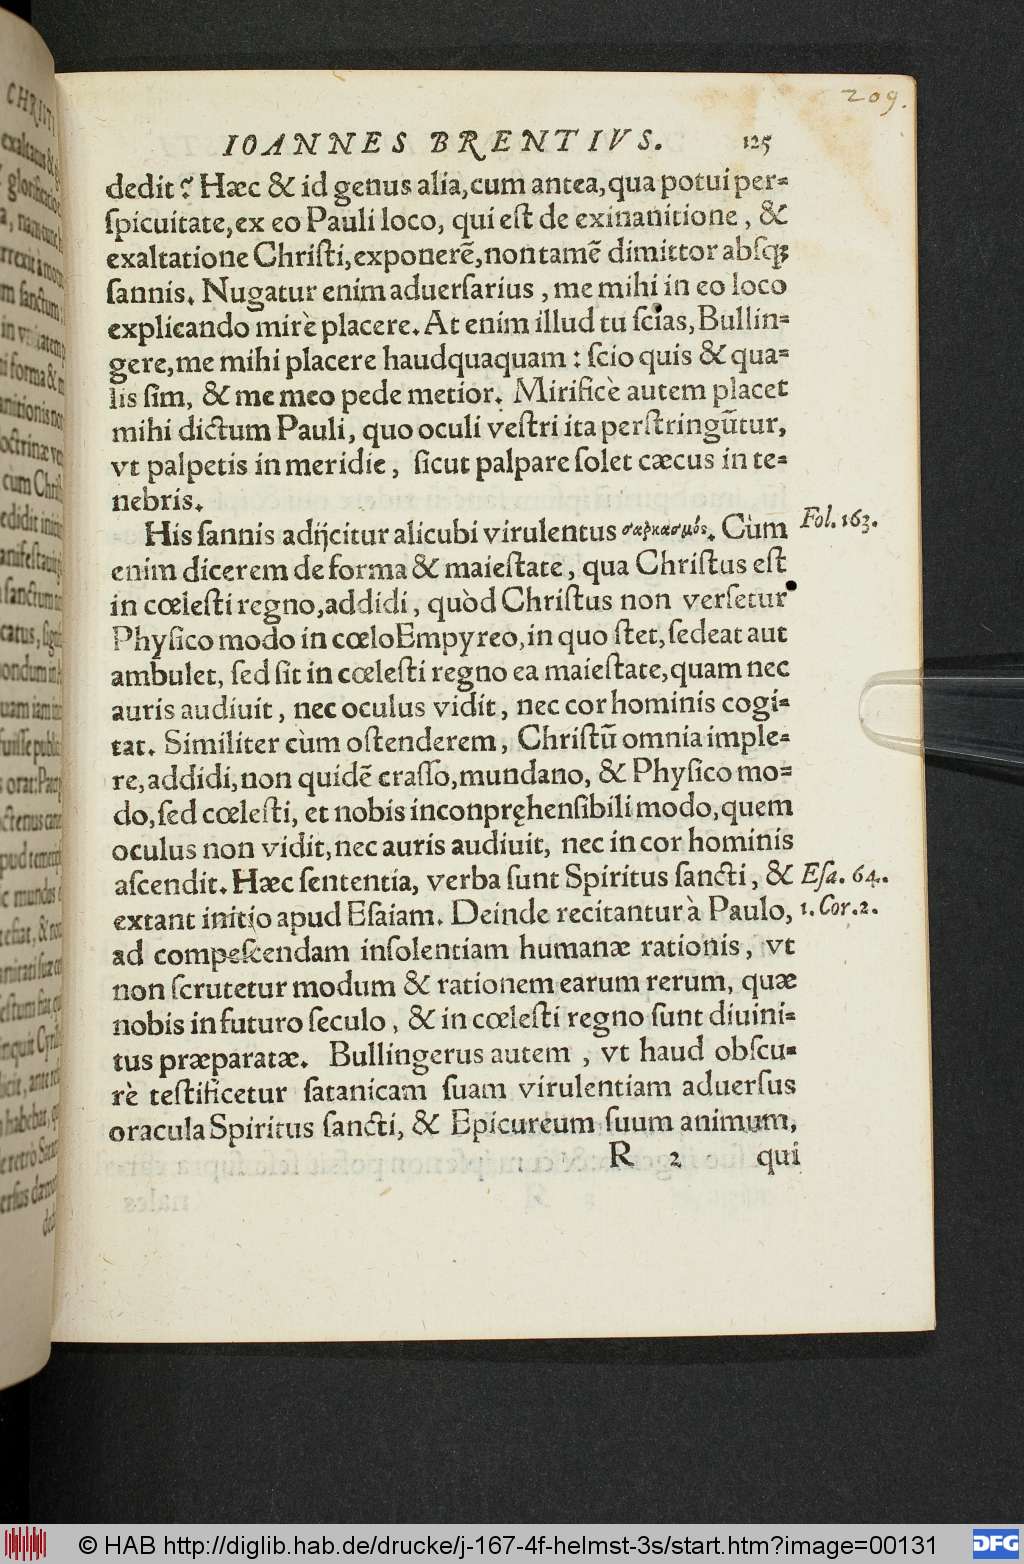 209.
IOANNES BRENTIVS. 125
dedit? Hæc & id genus alia, cum antea, qua potui per-
ſpicuitate, ex eo Pauli loco, qui eſt de exinanitione, &
exaltatione Chriſti, exponerẽ, non tamẽ dimittor abſq;
ſannis. Nugatur enim aduerſarius, me mihi in eo loco
explicando mirè placere. At enim illud tu ſcias, Bullin-
gere, me mihi placere haudquaquam: ſcio quis & qua-
lis ſim, & me meo pede metior. Mirificè autem placet
mihi dictum Pauli, quo oculi veſtri ita perſtringũtur,
vt palpetis in meridie, ſicut palpare ſolet cæcus in te-
nebris.
His ſannis adijcitur alicubi virulentus σαρκασμός. Cùm Fol. 163.
enim dicerem de forma & maieſtate, qua Chriſtus eſt
in cœleſti regno, addidi, quòd Chriſtus non verſetur
Phyſico modo in cœlo Empyreo, in quo ſtet, ſedeat aut
ambulet, ſed ſit in cœleſti regno ea maieſtate, quam nec
auris audiuit, nec oculus vidit, nec cor hominis cogi-
tat. Similiter cùm oſtenderem, Chriſtũ omnia imple-
re, addidi, non quidẽ craſſo, mundano, & Phyſico mo-
do, ſed cœleſti, et nobis inconpręhenſibili modo, quem
oculus non vidit, nec auris audiuit, nec in cor hominis
aſcendit. Hæc ſententia, verba ſunt Spiritus ſancti, & Eſa. 64.
extant initio apud Eſaiam. Deinde recitantur à Paulo, 1. Cor. 2.
ad compeſcendam inſolentiam humanæ rationis, vt
non ſcrutetur modum & rationem earum rerum, quæ
nobis in futuro ſeculo, & in cœleſti regno ſunt diuini-
tus præparatæ. Bullingerus autem, vt haud obſcu-
rè teſtificetur ſatanicam ſuam virulentiam aduerſus
oracula Spiritus ſancti, & Epicureum ſuum animum,
R 2 qui
© HAB http://diglib.hab.de/drucke/j-167-4f-helmst-3s/start.htm?image=00131
DFG